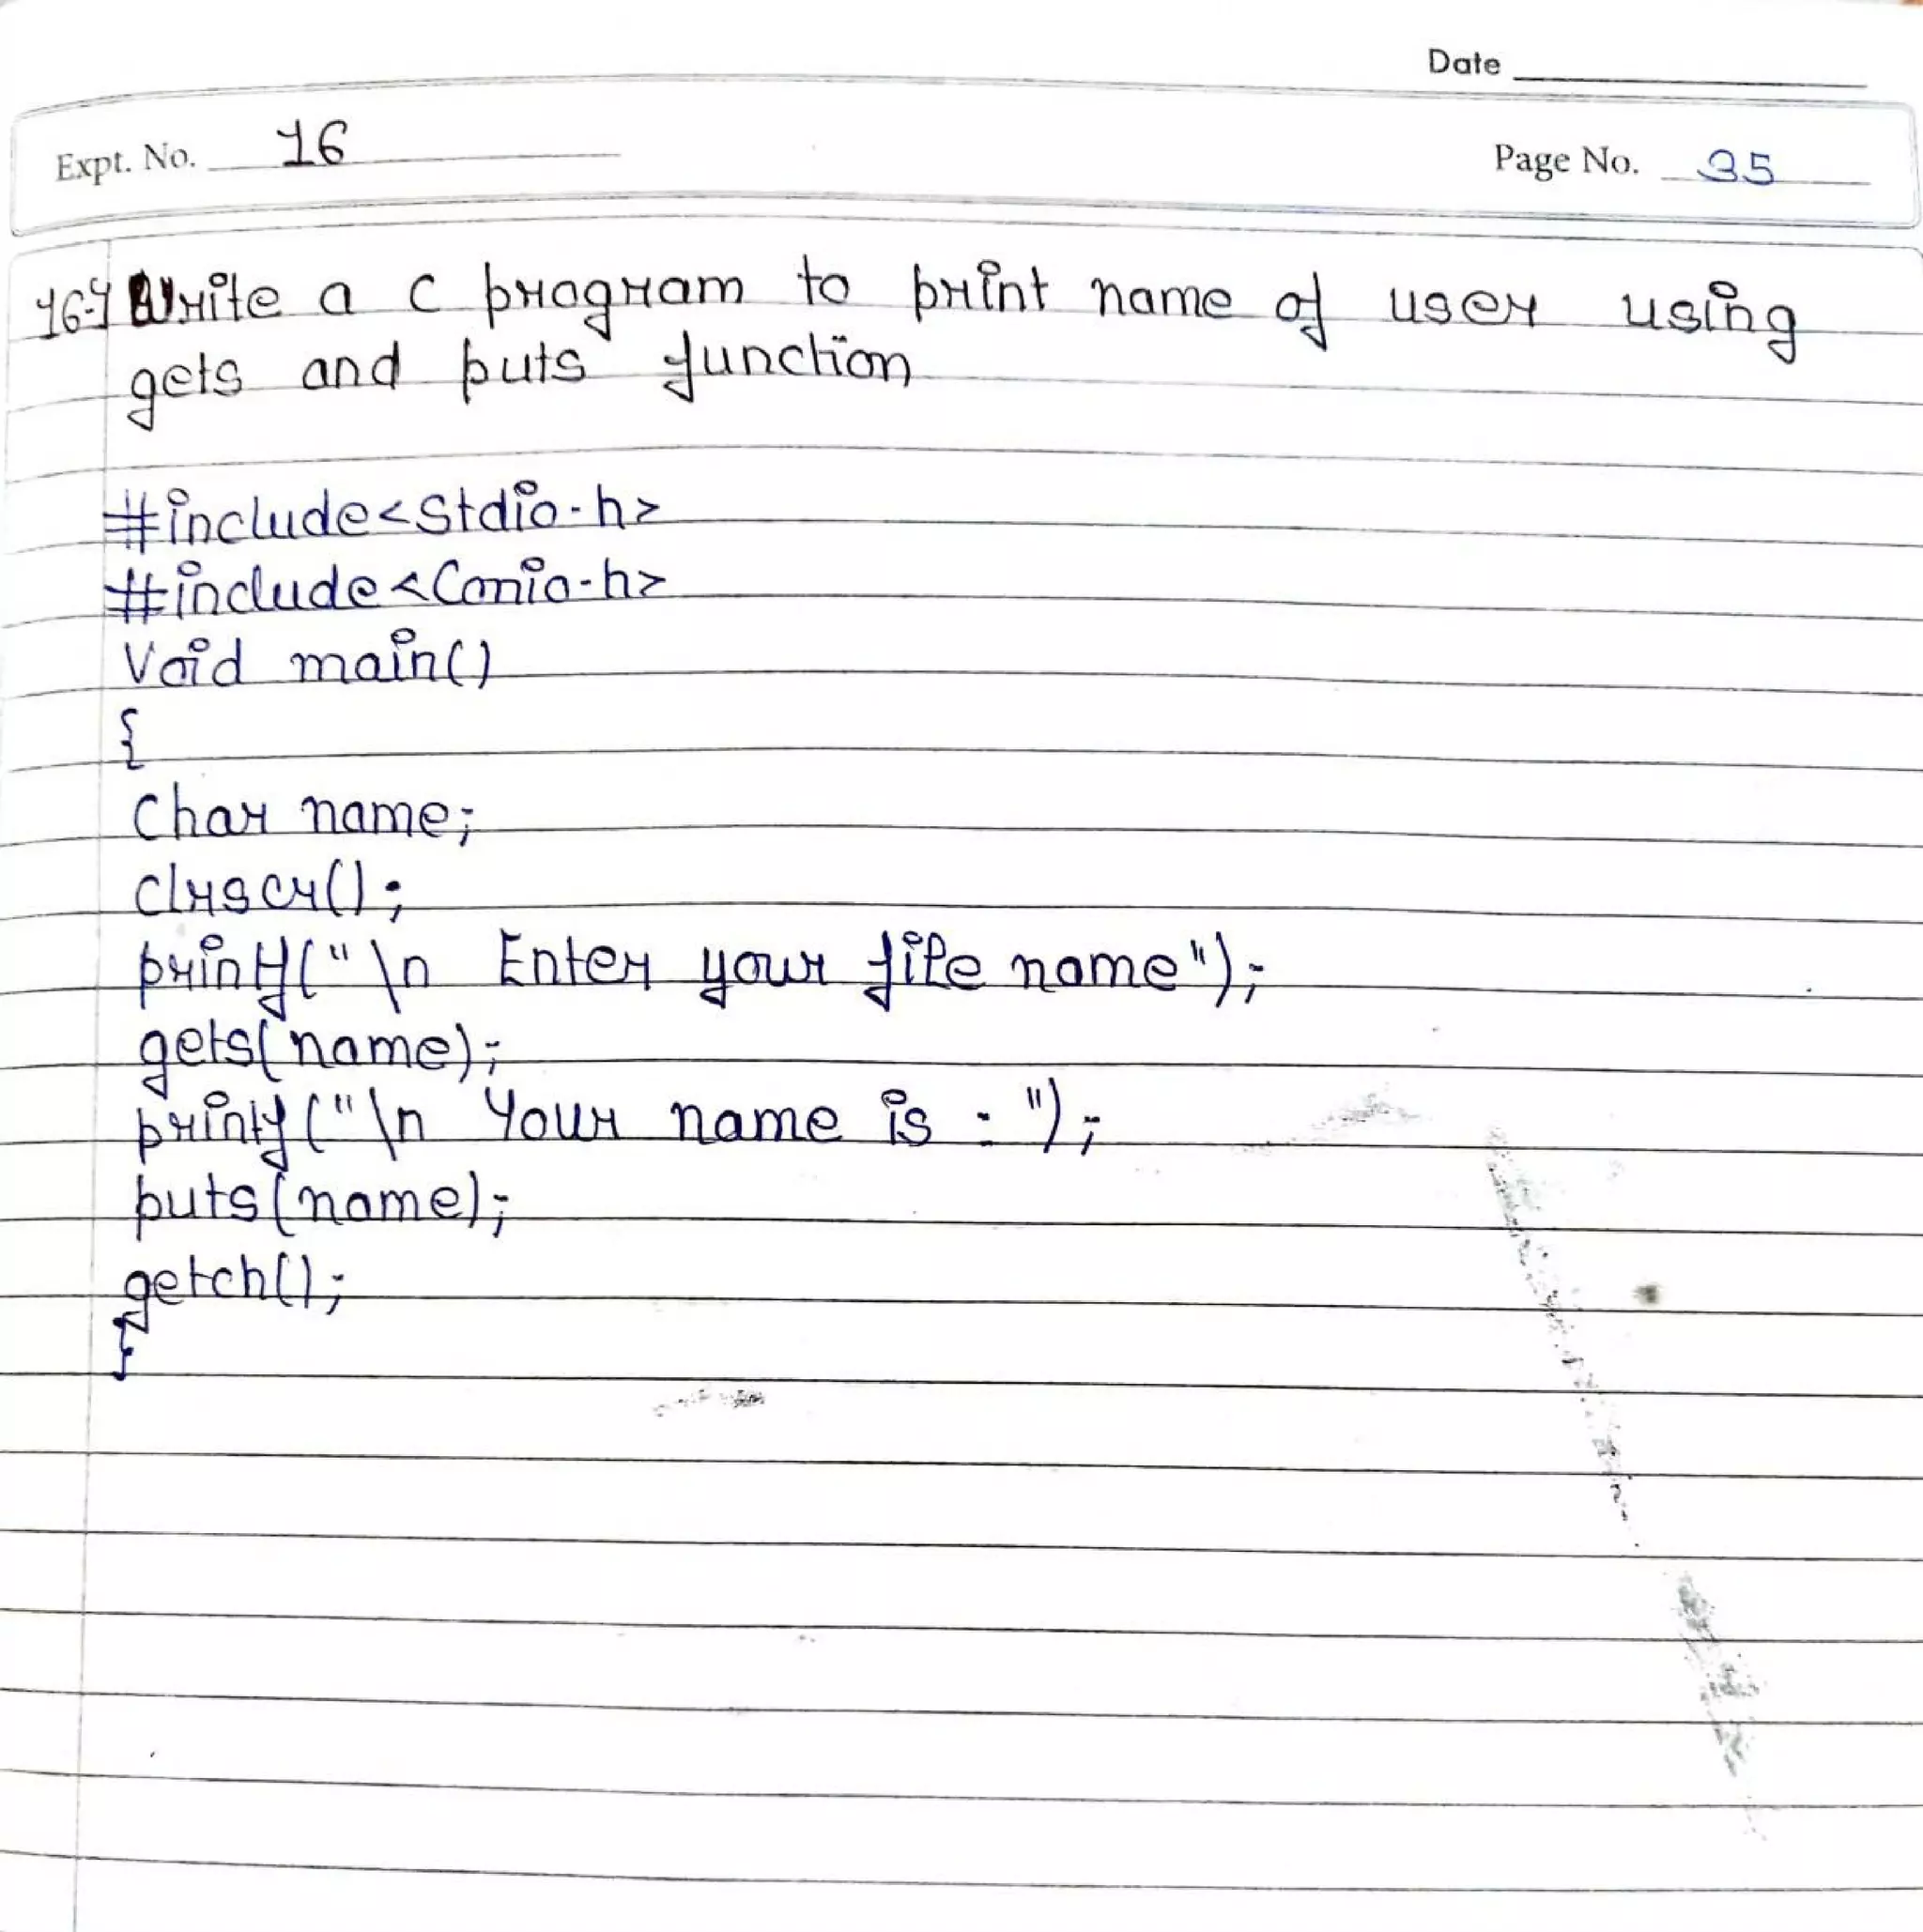 Date
Expt. No. 16
Page No. 35
16-} Write a C program to print name of user using
gets and puts function
#include<Stdio.h>
#include<Conio.h>
Void main()
{
Char name;
clrscr();
printf("\n Enter your file name");
gets(name);
printf("\n Your name is : ");
puts(name);
getch();
}